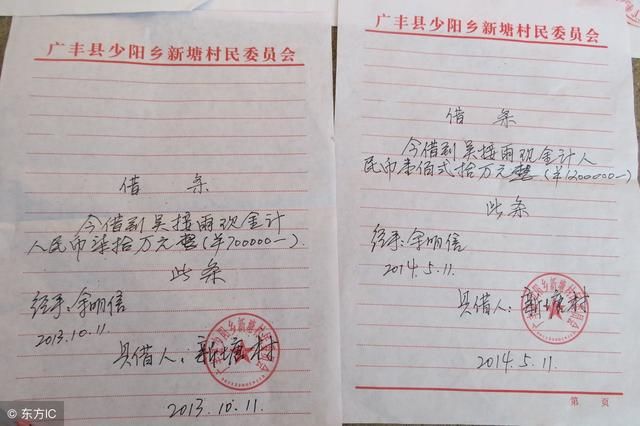 广丰县少阳乡新塘村民委员会
借 条
今借到吴接雨现金计
人民币柒拾万元整(¥700000-).
此条
经手:余明信
2013.10.11.
具借人:新塘村
2013.10.11.
广丰县少阳乡新塘村民委员会
借 条
今借到吴接雨现金计人
民币壹佰弍拾万元整(¥1200000-)
此条
经手:余明信
2014.5.11.
具借人:新塘村
2014.5.11.
第 页
© 东方IC